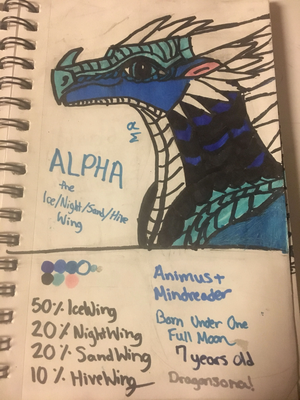 ALPHA
the
Ice/Night/Sand/Hive
Wing
50% IceWing
20% NightWing
20% SandWing
10% HiveWing
Animus +
Mindreader
Born Under One
Full Moon
7 years old
Dragonsona!